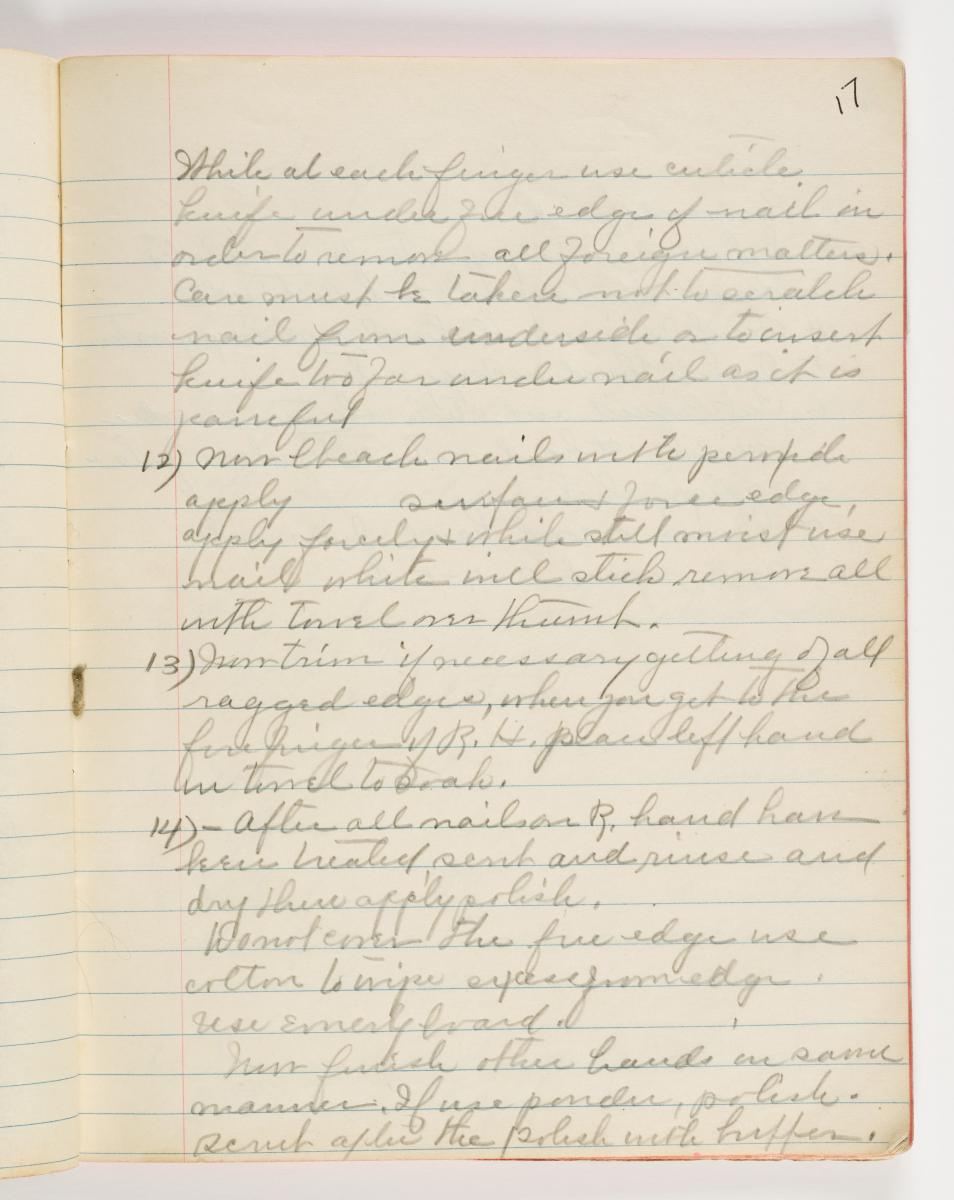 17
While at each finger use cuticle
knife under free edge of nail in
order to remove all foreign matters.
Care must be taken not to scratch
nail from underside or to insert
knife too far under nail as it is
painful
12) Now bleach nails with peroxide
apply surface & free edge,
apply freely & while still moist use
nail white will stick remove all
with towel over thumb.
13) Now trim if necessary getting of all
ragged edges, when you get to the
fore finger of R. H. place left hand
in towel to soak.
14) - After all nails on R. hand have
been treated, scrub and rinse and
dry then apply polish.
Do not cover the free edge use
cotton to wipe excess from edge.
Use Emery board.
Now finish other hands in same
manner. If use powder, polish.
scrub after the polish with buffer.